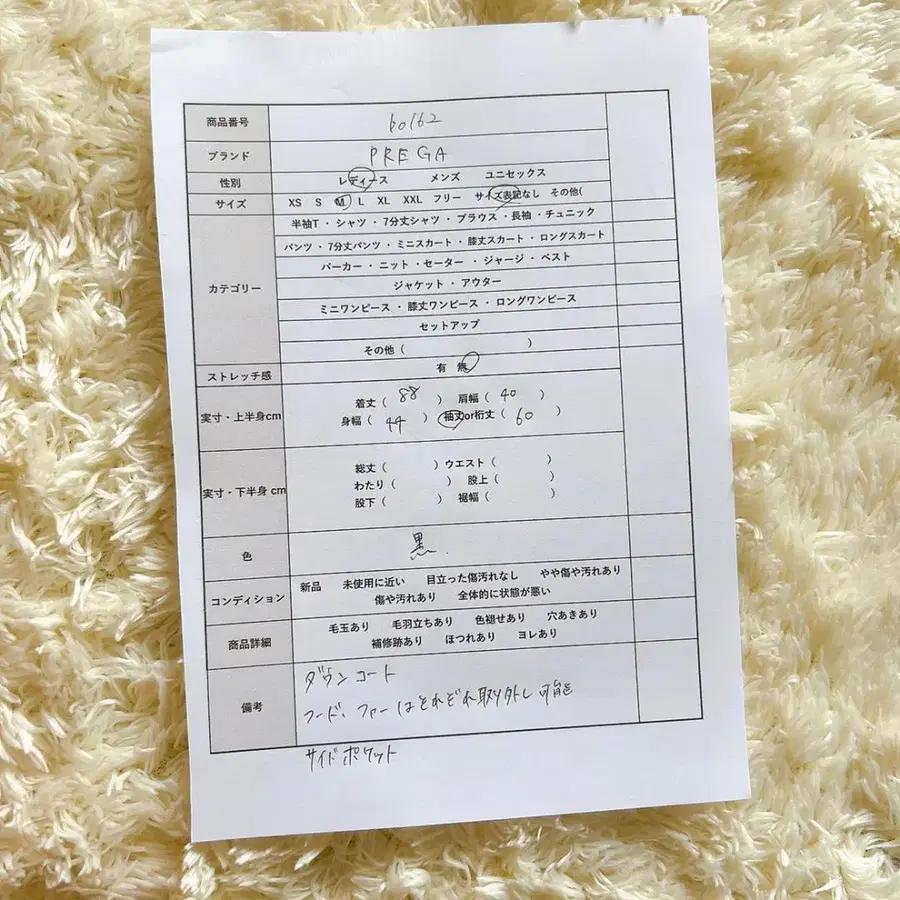 商品番号 b0162
ブランド PREGA
性別 レディース メンズ ユニセックス
サイズ XS S M L XL XXL フリー サイズ表記なし その他(
カテゴリー
半袖T・シャツ・7分丈シャツ・ブラウス・長袖・チュニック
パンツ・7分丈パンツ・ミニスカート・膝丈スカート・ロングスカート
パーカー・ニット・セーター・ジャージ・ベスト
ジャケット・アウター
ミニワンピース・膝丈ワンピース・ロングワンピース
セットアップ
その他( )
ストレッチ感 有 無
実寸・上半身cm
着丈( 88 ) 肩幅( 40 )
身幅( 44 ) 袖丈or裄丈( 60 )
実寸・下半身 cm
総丈( )ウエスト( )
わたり( ) 股上( )
股下( ) 裾幅( )
色 黒.
コンディション
新品 未使用に近い 目立った傷汚れなし やや傷や汚れあり
傷や汚れあり 全体的に状態が悪い
商品詳細
毛玉あり 毛羽立ちあり 色褪せあり 穴あきあり
補修跡あり ほつれあり ヨレあり
備考
ダウンコート
フード、ファーはそれぞれ取り外し可能
サイドポケット